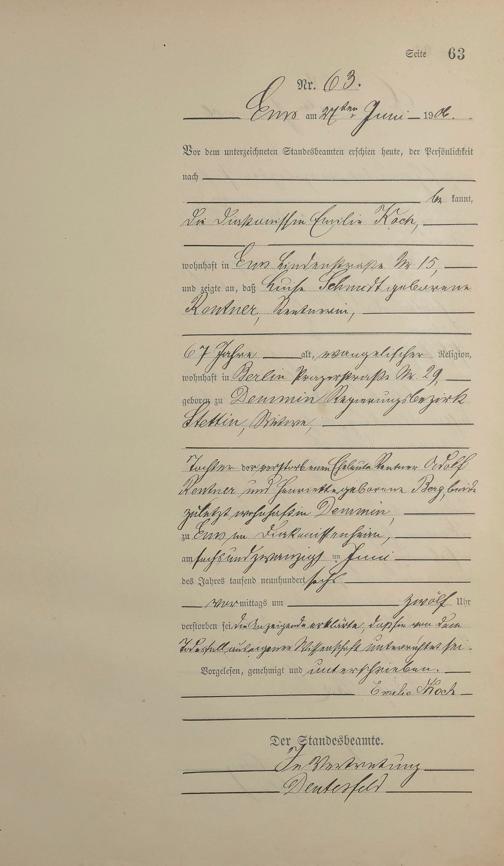 Seite 63
Nr. 63.
Ems am 27ten Juni 1906.
Vor dem unterzeichneten Standesbeamten erschien heute, der Persönlichkeit
nach
be kannt,
die Diakonissin Emilie Koch,
wohnhaft in Ems Lindenstraße Nr 15,
und zeigte an, daß Luise Schmidt geborene
Rentner, Rentnerin,
67 Jahre alt, evangelischer Religion,
wohnhaft in Berlin Pragerstraße Nr. 29,
geboren zu Demmin Regierungsbezirk
Stettin, Witwe,
Tochter der verstorbenen Eheleute Rentner Adolf
Rentner und Henriette geborene Berg, beide
zuletzt wohnhaft in Demmin,
zu Ems im Diakonissenheim,
am sechsundzwanzigsten Juni
des Jahres tausend neunhundert sechs
vor mittags um zwölf Uhr
verstorben sei. Die Anzeigende erklärte, daß sie von dem
Todesfall aus eigener Wissenschaft unterrichtet sei.
Vorgelesen, genehmigt und unterschrieben.
Emilie Koch
Der Standesbeamte.
In Vertretung